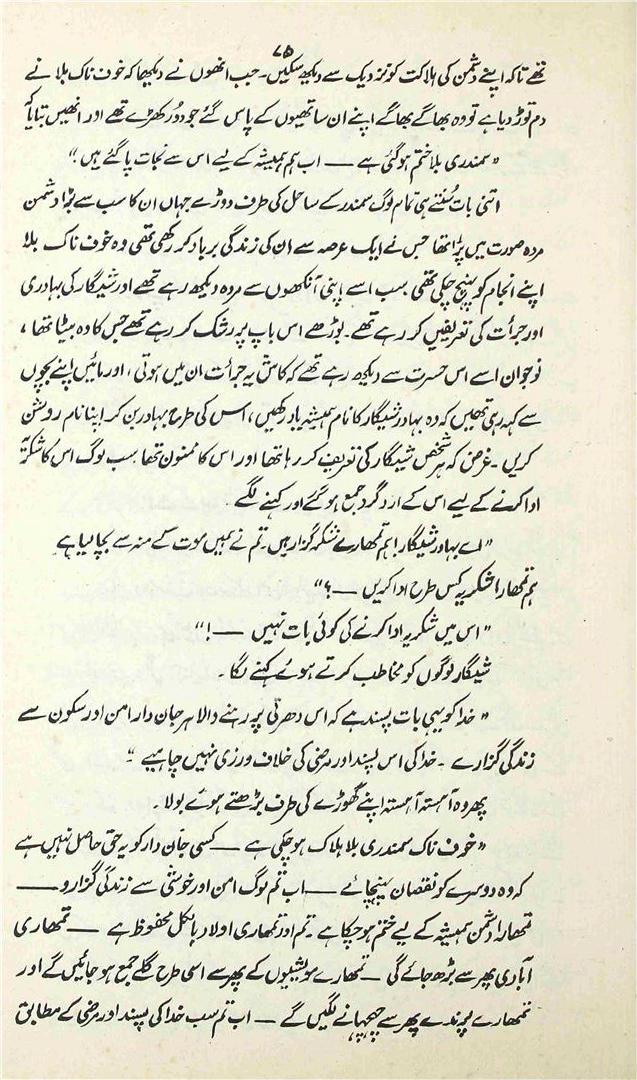 ۷۵
تھے تاکہ اپنے دشمن کی ہلاکت کو نزدیک سے دیکھ سکیں۔ جب انھوں نے دیکھا کہ خوف ناک بلا نے
دم توڑ دیا ہے تو وہ بھاگے بھاگے اپنے ان ساتھیوں کے پاس گئے جو دور کھڑے تھے اور انھیں بتایا کہ
"سمندری بلا ختم ہو گئی ہے — اب ہم ہمیشہ کے لیے اس سے نجات پا گئے ہیں!"
اتنی بات سُنتے ہی تمام لوگ سمندر کے ساحل کی طرف دوڑے جہاں ان کا سب سے بڑا دشمن
مردہ صورت میں پڑا تھا جس نے ایک عرصہ سے ان کی زندگی برباد کر رکھی تھی وہ خوف ناک بلا
اپنے انجام کو پہنچ چکی تھی سب اسے اپنی آنکھوں سے مردہ دیکھ رہے تھے اور شیگار کی بہادری
اور جرأت کی تعریفیں کر رہے تھے۔ بوڑھے اس باپ پر رشک کر رہے تھے جس کا وہ بیٹا تھا،
نوجوان اسے اس حسرت سے دیکھ رہے تھے کہ کاش یہ جرأت ان میں ہوتی، اور مائیں اپنے بچوں
سے کہہ رہی تھیں کہ وہ بہادر شیگار کا نام ہمیشہ یاد رکھیں، اس کی طرح بہادر بن کر اپنا نام روشن
کریں۔ غرض کہ ہر شخص شیگار کی تعریف کر رہا تھا اور اس کا ممنون تھا سب لوگ اس کا شکریہ
ادا کرنے کے لیے اس کے ارد گرد جمع ہو گئے اور کہنے لگے
"اے بہادر شیگار! ہم تمھارے شکر گزار ہیں۔ تم نے ہمیں موت کے منہ سے بچا لیا ہے
ہم تمھارا شکریہ کس طرح ادا کریں —؟"
"اس میں شکریہ ادا کرنے کی کوئی بات نہیں —!"
شیگار لوگوں کو مخاطب کرتے ہوئے کہنے لگا۔
"خدا کو یہی بات پسند ہے کہ اس دھرتی پر رہنے والا ہر جان دار امن اور سکون سے
زندگی گزارے۔ خدا کی اس پسند اور مرضی کی خلاف ورزی نہیں چاہیے"
پھر وہ آہستہ آہستہ اپنے گھوڑے کی طرف بڑھتے ہوئے بولا۔
"خوف ناک سمندری بلا ہلاک ہو چکی ہے — کسی جان دار کو یہ حق حاصل نہیں ہے
کہ وہ دوسرے کو نقصان پہنچائے — اب تم لوگ امن اور خوشی سے زندگی گزارو —
تمھارا دشمن ہمیشہ کے لیے ختم ہو چکا ہے۔ تم اور تمھاری اولاد بالکل محفوظ ہے — تمھاری
آبادی پھر سے بڑھ جائے گی — تمھارے مویشیوں کے پھر سے اسی طرح گلے جمع ہو جائیں گے اور
تمھارے پرندے پھر سے چہچہانے لگیں گے — اب تم سب خدا کی پسند اور مرضی کے مطابق